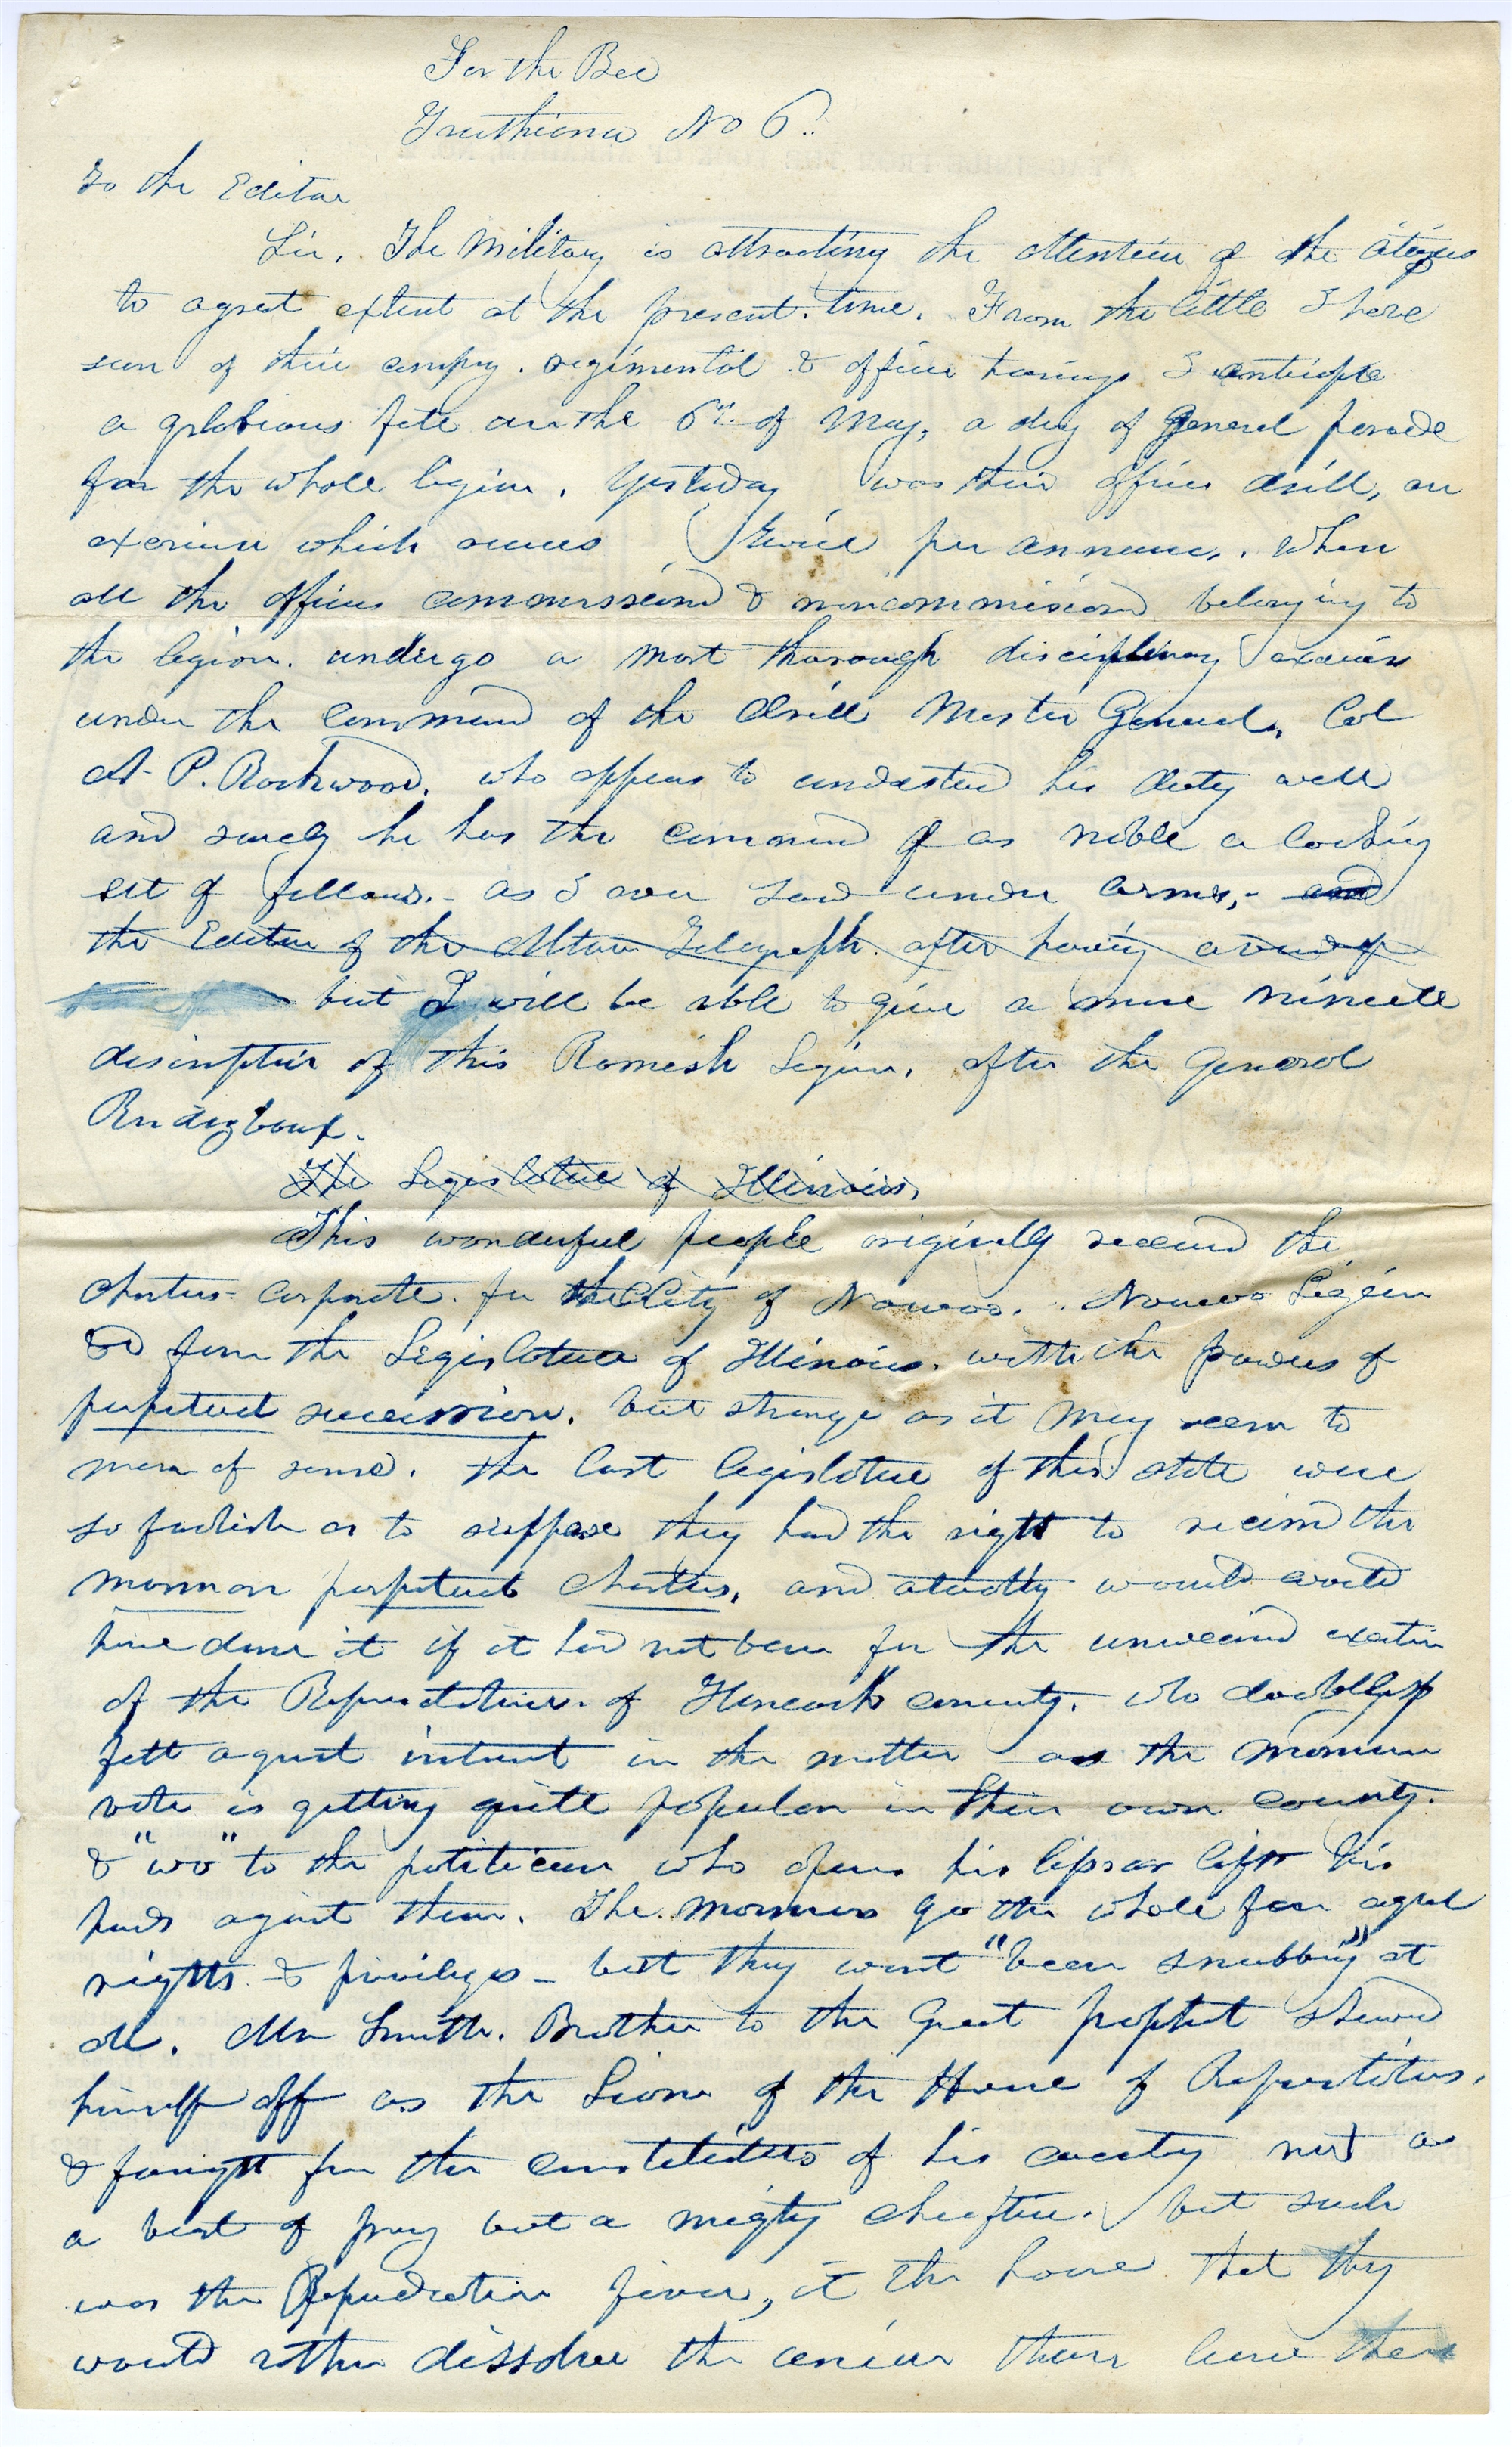 For the Bee
Truthiana No 6..
To the Editor
Sir, The Military is attracting the attention of the citizens
to a great extent at the present time. From the little I have
seen of their company. regimental & officer trainings I anticipate
a glorious fete on the 6th of May, a day of General parade
for the whole legion. Yesterday was their officer drill, an
exercise which occurs twice per annum,. when
all the officers commissiond & noncommissiond belonging to
the legion. undergo a most thorough disciplinary exercise
under the command of the drill Master General, Col
A. P. Rockwood. who appears to understand his duty well
and surely he has the command of as noble a looking
set of fellows.- as I ever saw under arms,- and
the Editor of the Alton Telegraph. after having
but I will be able to give a more minute
discription of this Romish Legion, after the General
Rendezvous.
The Legislature of Illinois,
This wonderful people originally received the
charters corporate. for the City of Nauvoo. Nauvoo Legion
&c from the Legislature of Illinois. with the powers of
perpetual succession. but strange as it may seem to
men of sense. the last legislature of this state were
so foolish as to suppose they had the right to recind the
mormon perpetual charters, and actually would would
have done it if it had not been for the unwearied exertion
of the Representatives of Hancock county. who doubtless
felt a great interest in the matter as the mormon
vote is getting quite popular in their own county.
& "wo" to the politician who opens his lips or lifts his
hands against them. The mormons go the whole for equal
rights & privileges - but they want "been snubbing" at
all. Mr Smith. Brother to the Great prophet shewed
himself off as the Lion of the House of Representatives,
& fought for the constituents of his county not as
a beast of prey but a mighty chieftain. but such
was the Repudiation fever, in the house that they
would rather dissolve the union than have them